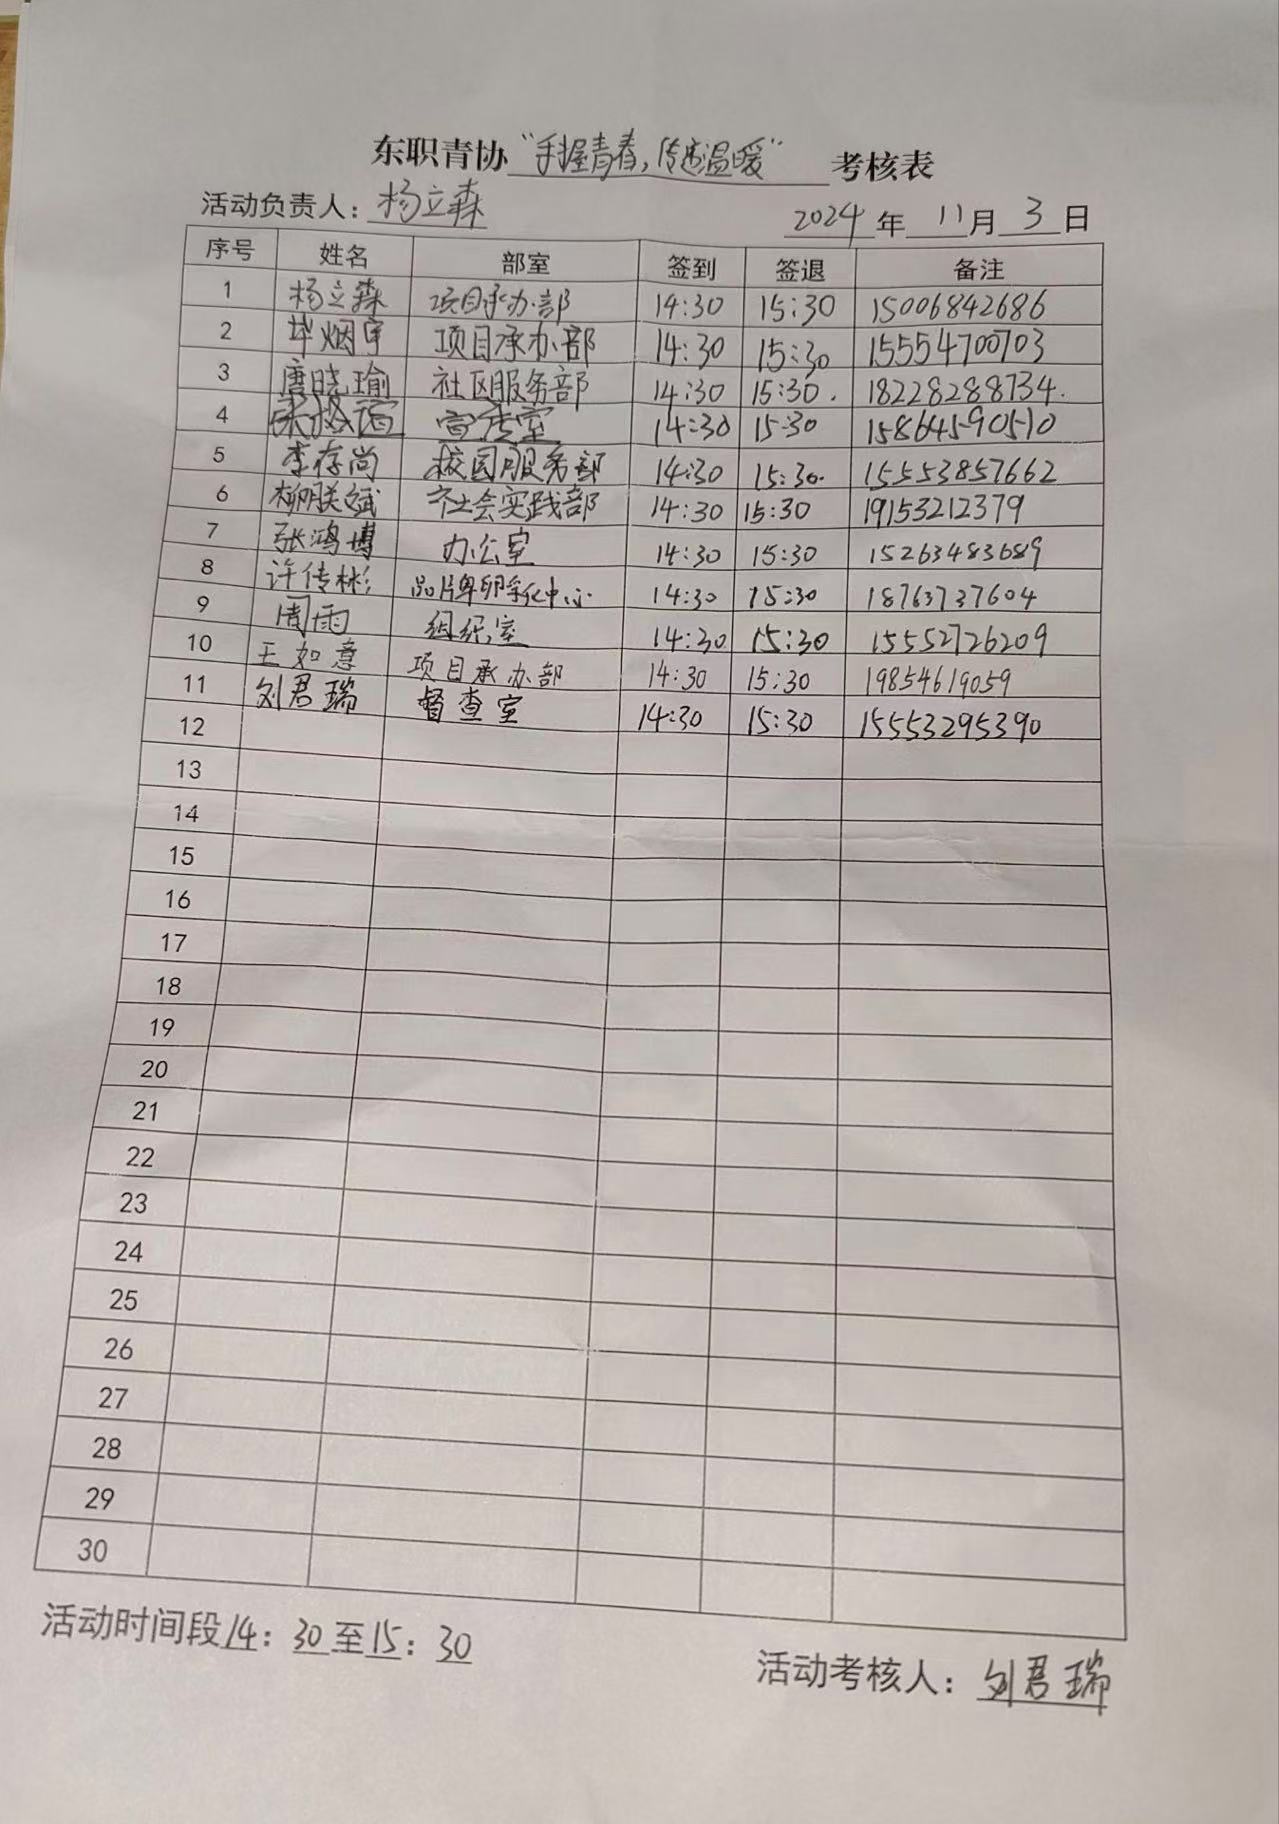 东职青协“手握青春，传递温暖”考核表
活动负责人：杨立森 2024年11月3日
序号 姓名 部室 签到 签退 备注
1 杨立森 项目承办部 14:30 15:30 15006842686
2 毕烟宇 项目承办部 14:30 15:30 15554700703
3 唐晓瑜 社区服务部 14:30 15:30. 18228288734.
4 宣传室 14:30 15:30 15864590510
5 李存尚 校园服务部 14:30 15:30. 15553857662
6 柳朕斌 社会实践部 14:30 15:30 19153212379
7 张鸿博 办公室 14:30 15:30 15263483689
8 许传彬 品牌孵化中心 14:30 15:30 18763737604
9 周雨 组织室 14:30 15:30 15552726209
10 王如意 项目承办部 14:30 15:30 19854619059
11 刘君瑞 督查室 14:30 15:30 15553295390
12
13
14
15
16
17
18
19
20
21
22
23
24
25
26
27
28
29
30
活动时间段14：30至15：30
活动考核人：刘君瑞